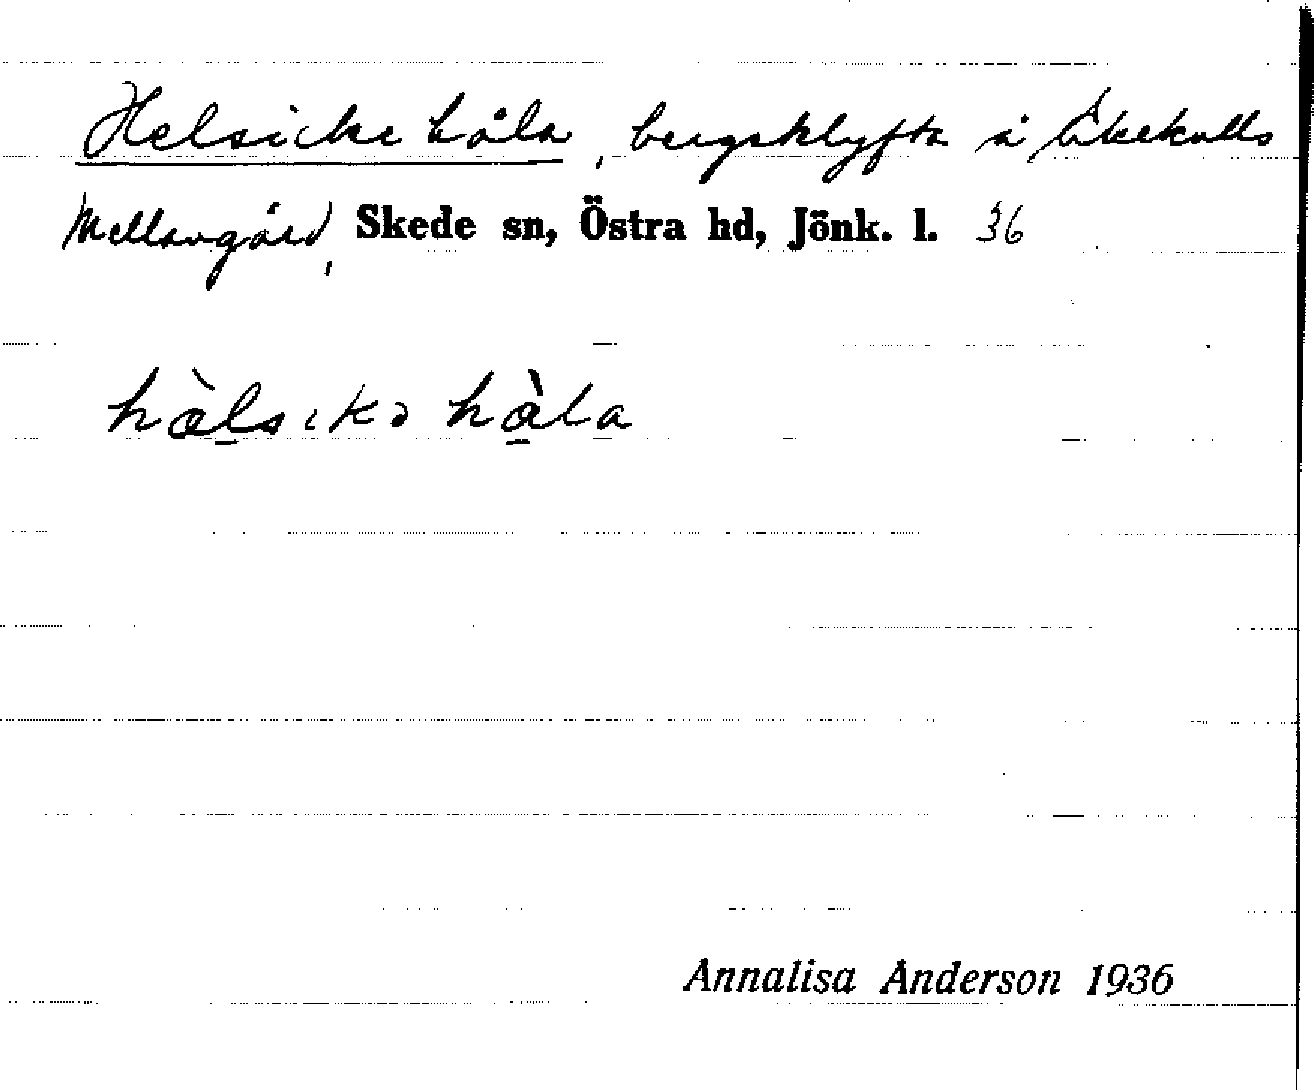 Helsicke håla, bergsklyfta å Åkekvills
Mellangård, Skede sn, Östra hd, Jönk. l. 36
hæ̀lsıkə hå̀la
Annalisa Anderson 1936